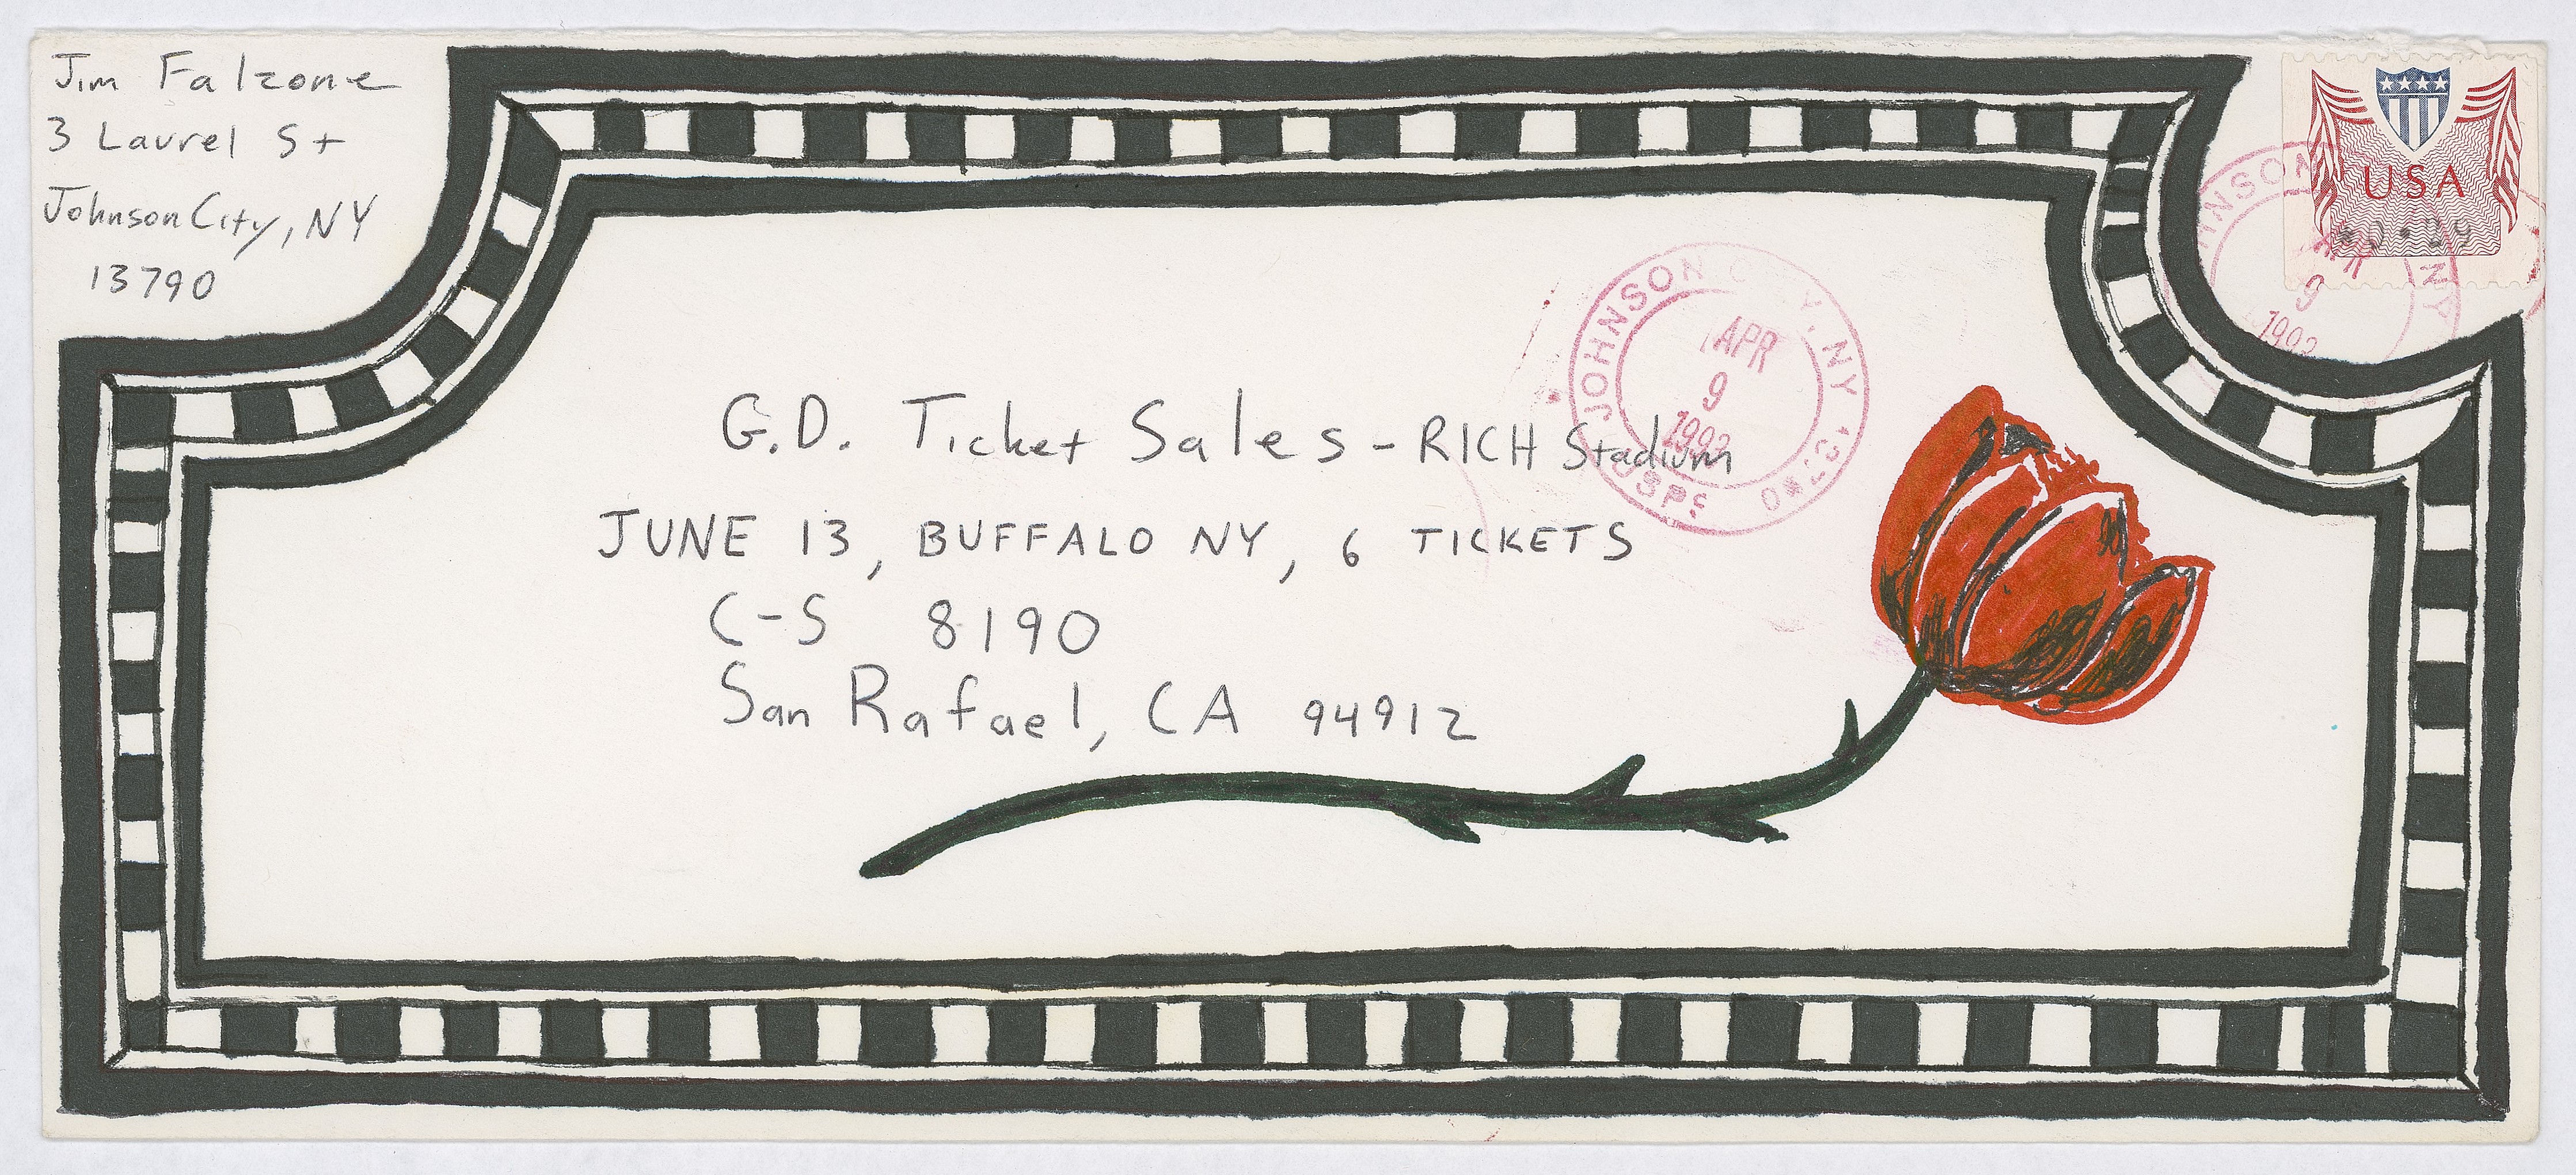 Jim Falzone
3 Laurel St
Johnson City, NY
13790
USA
JOHNSON NY
APR
9
1992
JOHNSON CITY, NY
APR
9
1992
USPS
G.D. Ticket Sales - RICH Stadium
JUNE 13, BUFFALO NY, 6 TICKETS
C-S 8190
San Rafael, CA 94912